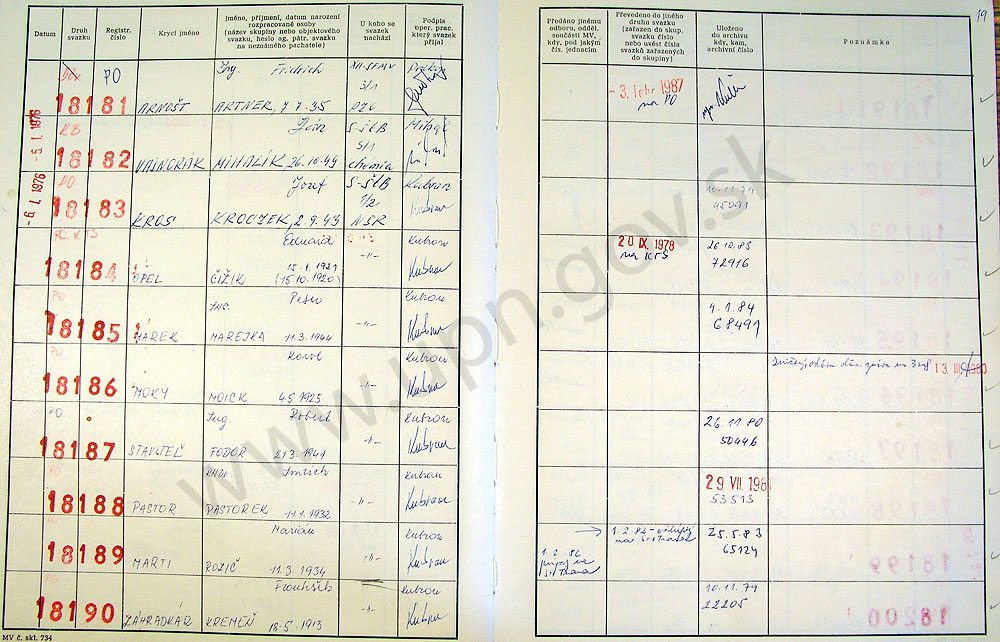 19
Datum
Druh svazku
Registr. číslo
Krycí jméno
Jméno, příjmení, datum narození rozpracované osoby (název skupiny nebo objektového svazku, heslo ag. pátr. svazku na neznámého pachatele)
U koho se svazek nachází
Podpis oper. prac. který svazek přijal
Předáno jinému odboru, odděl. součásti MV, kdy, pod jakým čís. jednacím
Převedeno do jiného druhu svazku (zařazen do skup. svazku číslo nebo uvést čísla svazků zařazených do skupiny)
Uloženo do archivu kdy, kam, archivní číslo
Poznámka
PO
Ing. Fridrich
XII-SFMV
18181
ARNOŠT
ARTNER, 7.7.35
- 3. febr. 1987
na PO
- 5. I. 1976
KB
Ján
S-ŠtB
18182
VAJNORÁK
MIHALÍK 26.10.49
chemia
- 6. I. 1976
PO
Jozef
S-ŠtB
Kubran
1/2
18183
KROS
KROČJEK, 2.9.43
NSR
Kubran
10.11.79
45091
Eduard
Kubran
18184
OPEL
ČIŽIK
15.1.1921
(15.10.1920)
-"-
Kubran
20 IX. 1978
na KTS
26.10.85
72916
PO
Ing.
Peter
Kubran
18185
MAREK
MAREJKA 11.3.1944
-"-
Kubran
4.1.84
68491
PO
Karol
Kubran
18186
MOKY
MOICK 4.5.1925
-"-
Kubran
13 III. 1980
PO
Ing.
Robert
Kubran
18187
STAVITEĽ
FODOR 21.3.1941
-"-
Kubran
26.11.80
50446
PO
RNDr.
Kubran
18188
PASTOR
PASTOREK 11.1.1932
-"-
Kubran
29 VII. 1981
53513
Marián
Kubran
18189
MARTI
ROZIČ 11.3.1934
Kubran
1.2.82
25.5.83
65124
PO
František
Kubran
18190
ZÁHRADKÁR
KREMEŇ 18.5.1913
-"-
Kubran
10.11.79
22205
MV č. skl. 734
www.upn.gov.sk